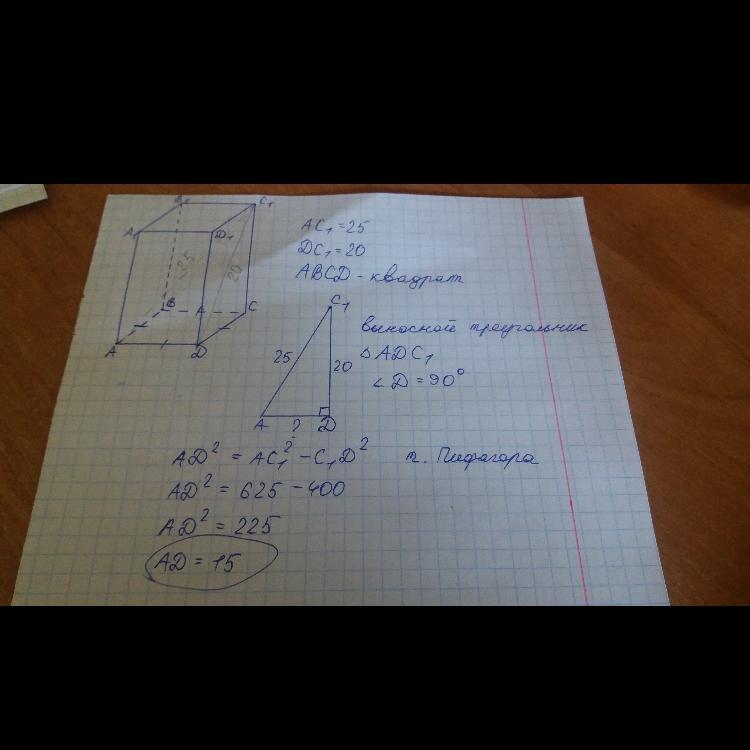 B₁
C₁
A₁
D₁
25
20
B
C
A
D
AC₁ = 25
DC₁ = 20
ABCD - квадрат
C₁
25
20
A
?
D
выносной треугольник
△ ADC₁
∠D = 90°
AD² = AC₁² - C₁D² т. Пифагора
AD² = 625 - 400
AD² = 225
AD = 15